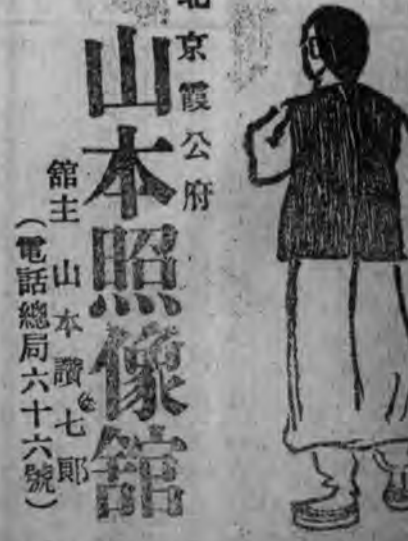 北京霞公府
山本照像舘
舘主 山本讚七郎
（電話總局六十六號）